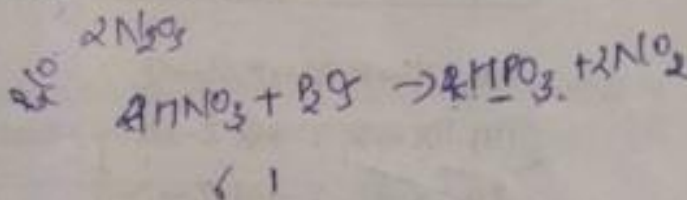 2N₂O₅
4HNO₃ + P₂O₅ → 4HPO₃. + 2NO₂